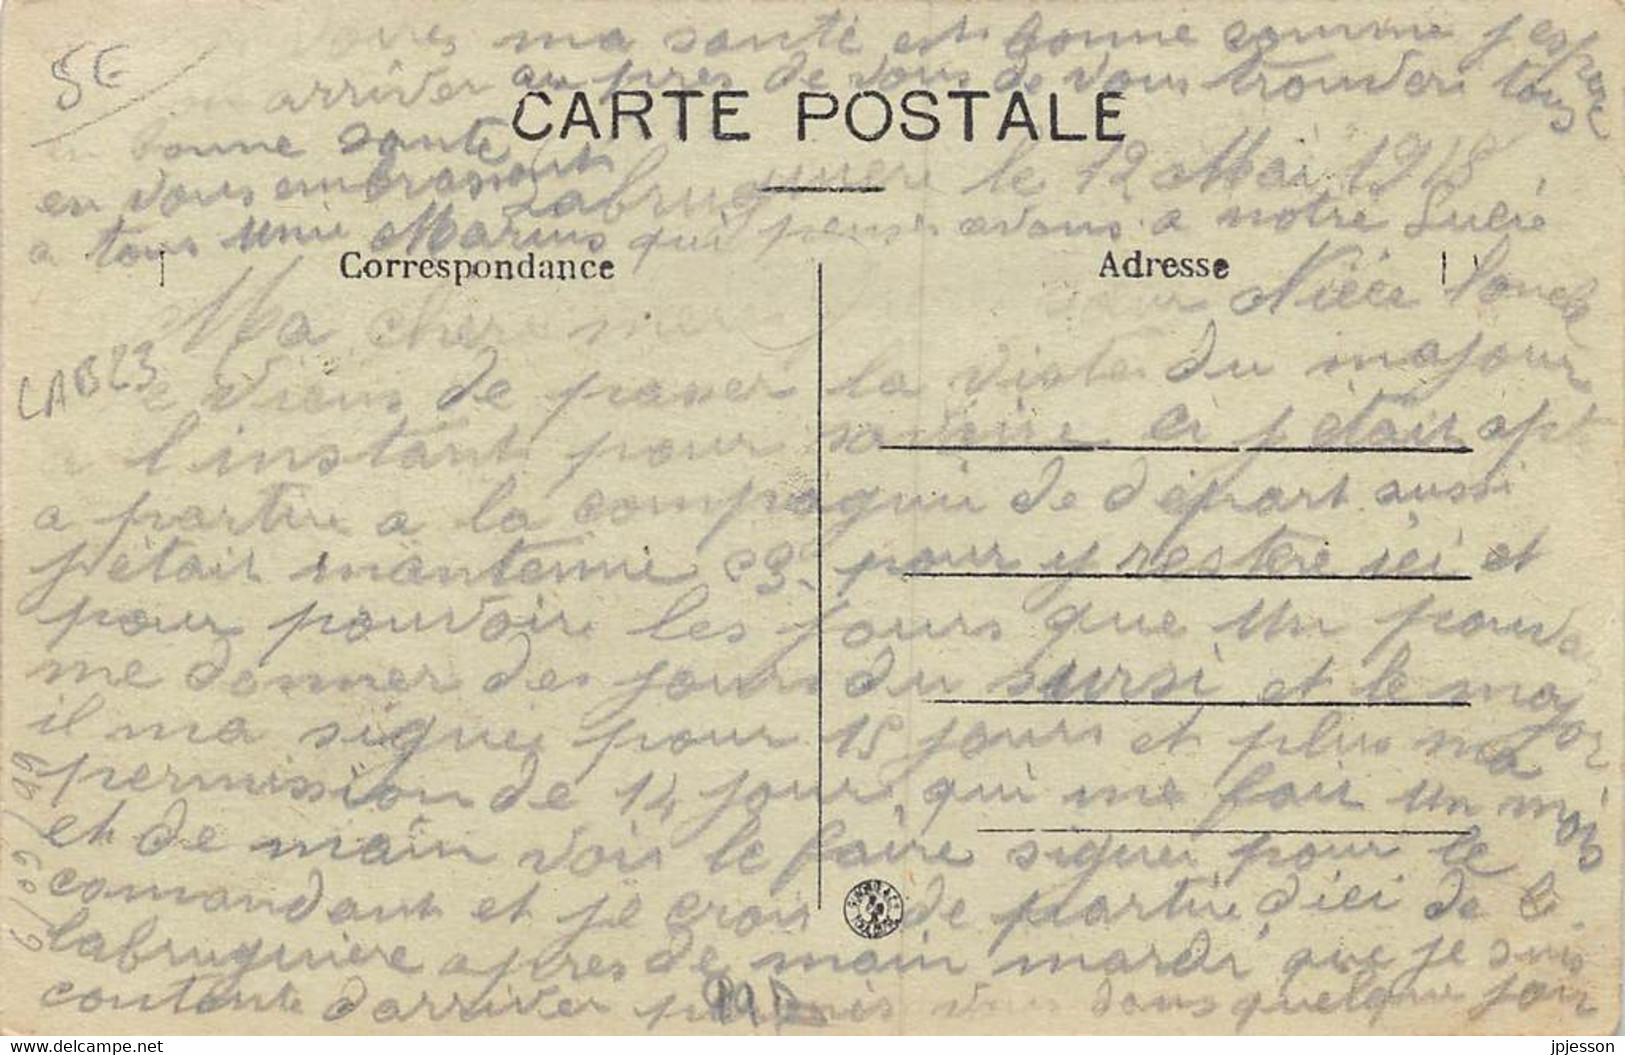 5E
ma santé est bonne comme j'espere
arriver au pres de vous de vous trouver tous
bonne santé
en vous embrassant
a tous unie Marius qui pense avous a notre Lucie
CARTE POSTALE
Labruguiere le 12 Mai 1918
Correspondance
Adresse
Ma chere mere Niéce
LAB23
viens de passer la visite du majour
a l'instant pour savoire ci j'etait apt
a partire a la compagnie de départ aussi
j'etait mantenue pour y restere ici et
pour pouvoire les jours que un pouvai
me donner des jours du sursi et le major
il ma signer pour 15 jours et plus ma
permission de 14 jour, qui me fair un mois
et de main voir le faire signer pour le
comandant et je crois de partire dici de
labruguiere apres de main mardi que je suis
contente d'arriver vous dans quelque jour
jpjesson